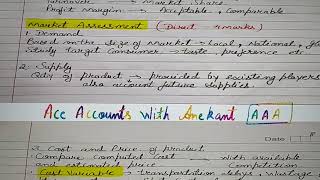 Turnover → Market Share
Profit Margin → Acceptable, Comparable
Market Assessment (Direct 4 marks)
1. Demand
Based on the size of Market → Local, National,
Study Target Consumer → taste, preference etc
2. Supply
Qty of product → provided by existing players
also account future supplies.
Ace Accounts With Anekant AAA
3. Cost and Price of product
Compare Computed Cost with available
and estimated price Competition
Cost Variable → transportation delays, Wastage